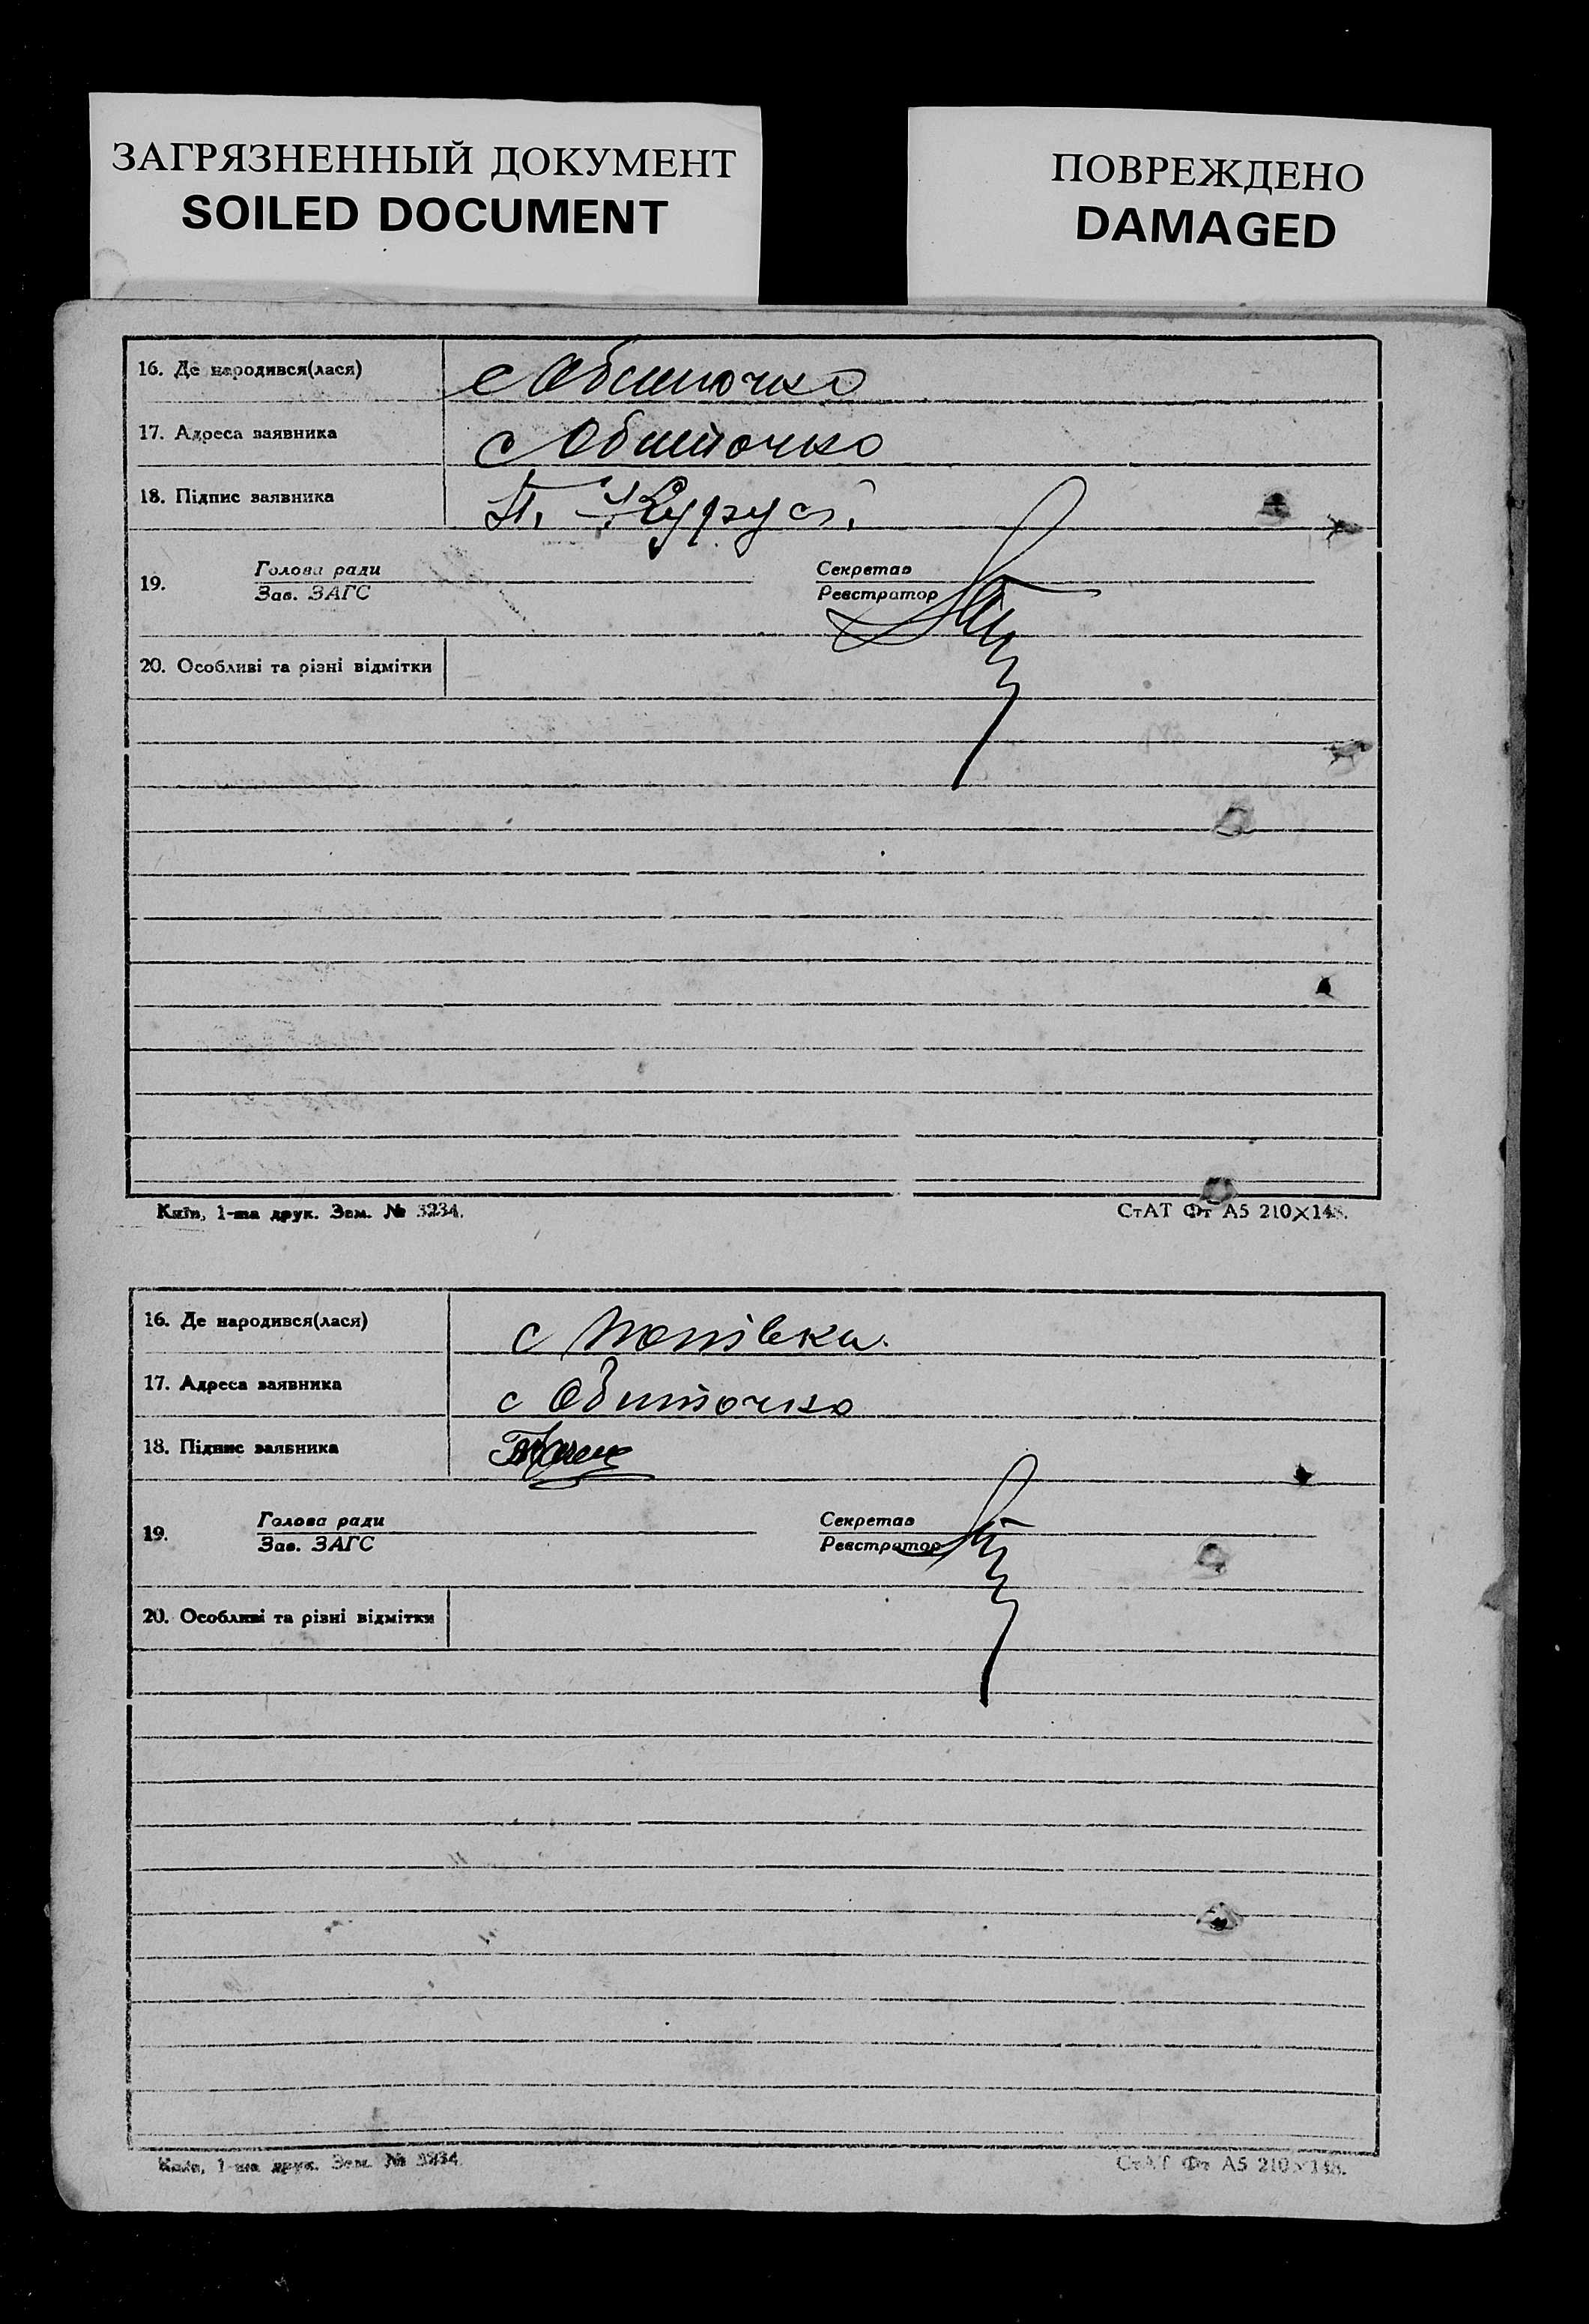 ЗАГРЯЗНЕННЫЙ ДОКУМЕНТ
SOILED DOCUMENT
ПОВРЕЖДЕНО
DAMAGED
16. Де народився(лася) с Обиточно
17. Адреса заявника с Обиточно
18. Підпис заявника П.
19. Голова ради Секретар
Зав. ЗАГС Реєстратор
20. Особливі та різні відмітки
Київ, 1-ша друк. Зам. № 3234. СтАТ Фт А5 210×148.
16. Де народився(лася) с Попівка
17. Адреса заявника с Обиточно
18. Підпис заявника
19. Голова ради Секретар
Зав. ЗАГС Реєстратор
20. Особливі та різні відмітки
Київ, 1-ша друк. Зам. № 3234 СтАТ Фт А5 210×148.